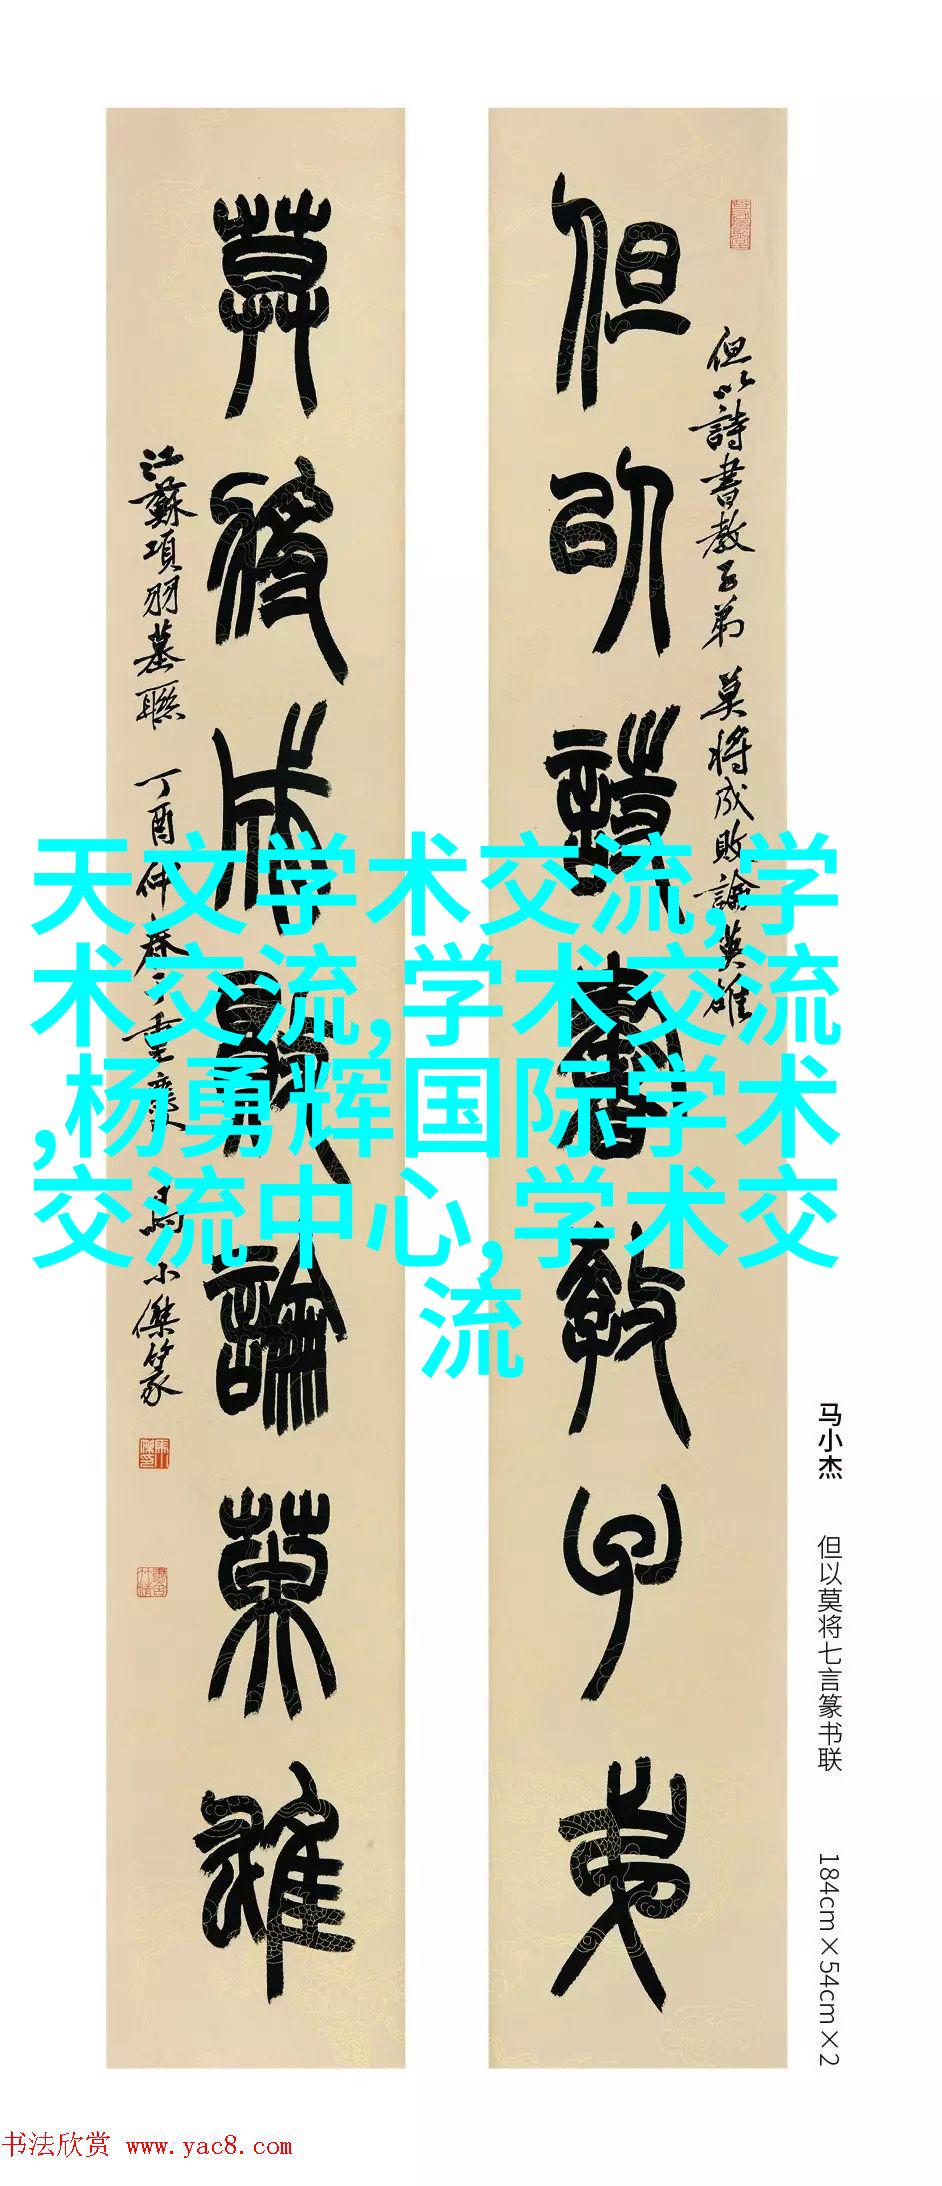 但以詩書教子弟
但以詩書教子弟 莫將成敗論英雄
莫將成敗論英雄
江蘇項羽墓聯 丁酉仲春于重慶 馬小傑篆
天文学术交流,学
术交流,学术交流
,杨勇辉国际学术
交流中心,学术交
流
马小杰 但以莫将七言篆书联 184cm×54cm×2
书法欣赏 www.yac8.com